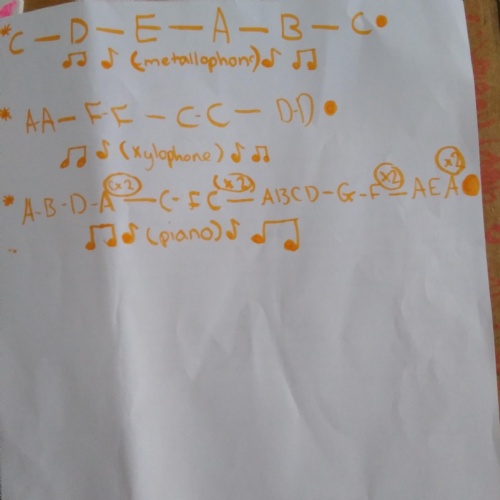 * C — D — E — A — B — C •
♫ ♪ (metallophone) ♪ ♫
* A-A — F-F — C-C — D-D •
♫ ♪ (xylophone) ♪ ♫
* A-B-D-A (x2) — C-FC (x2) — ABCD-G-F (x2) — AEA (x2) •
♫ ♪ (piano) ♪ ♫